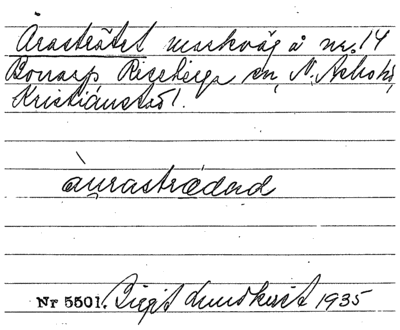 Årasträtet markväg å nr. 14
Bonarp Riseberga sn, N. Åsbo hd,
Kristianstad l.
àu̯rastrædəd
Nr 5501. Birgit Lundkvist 1935